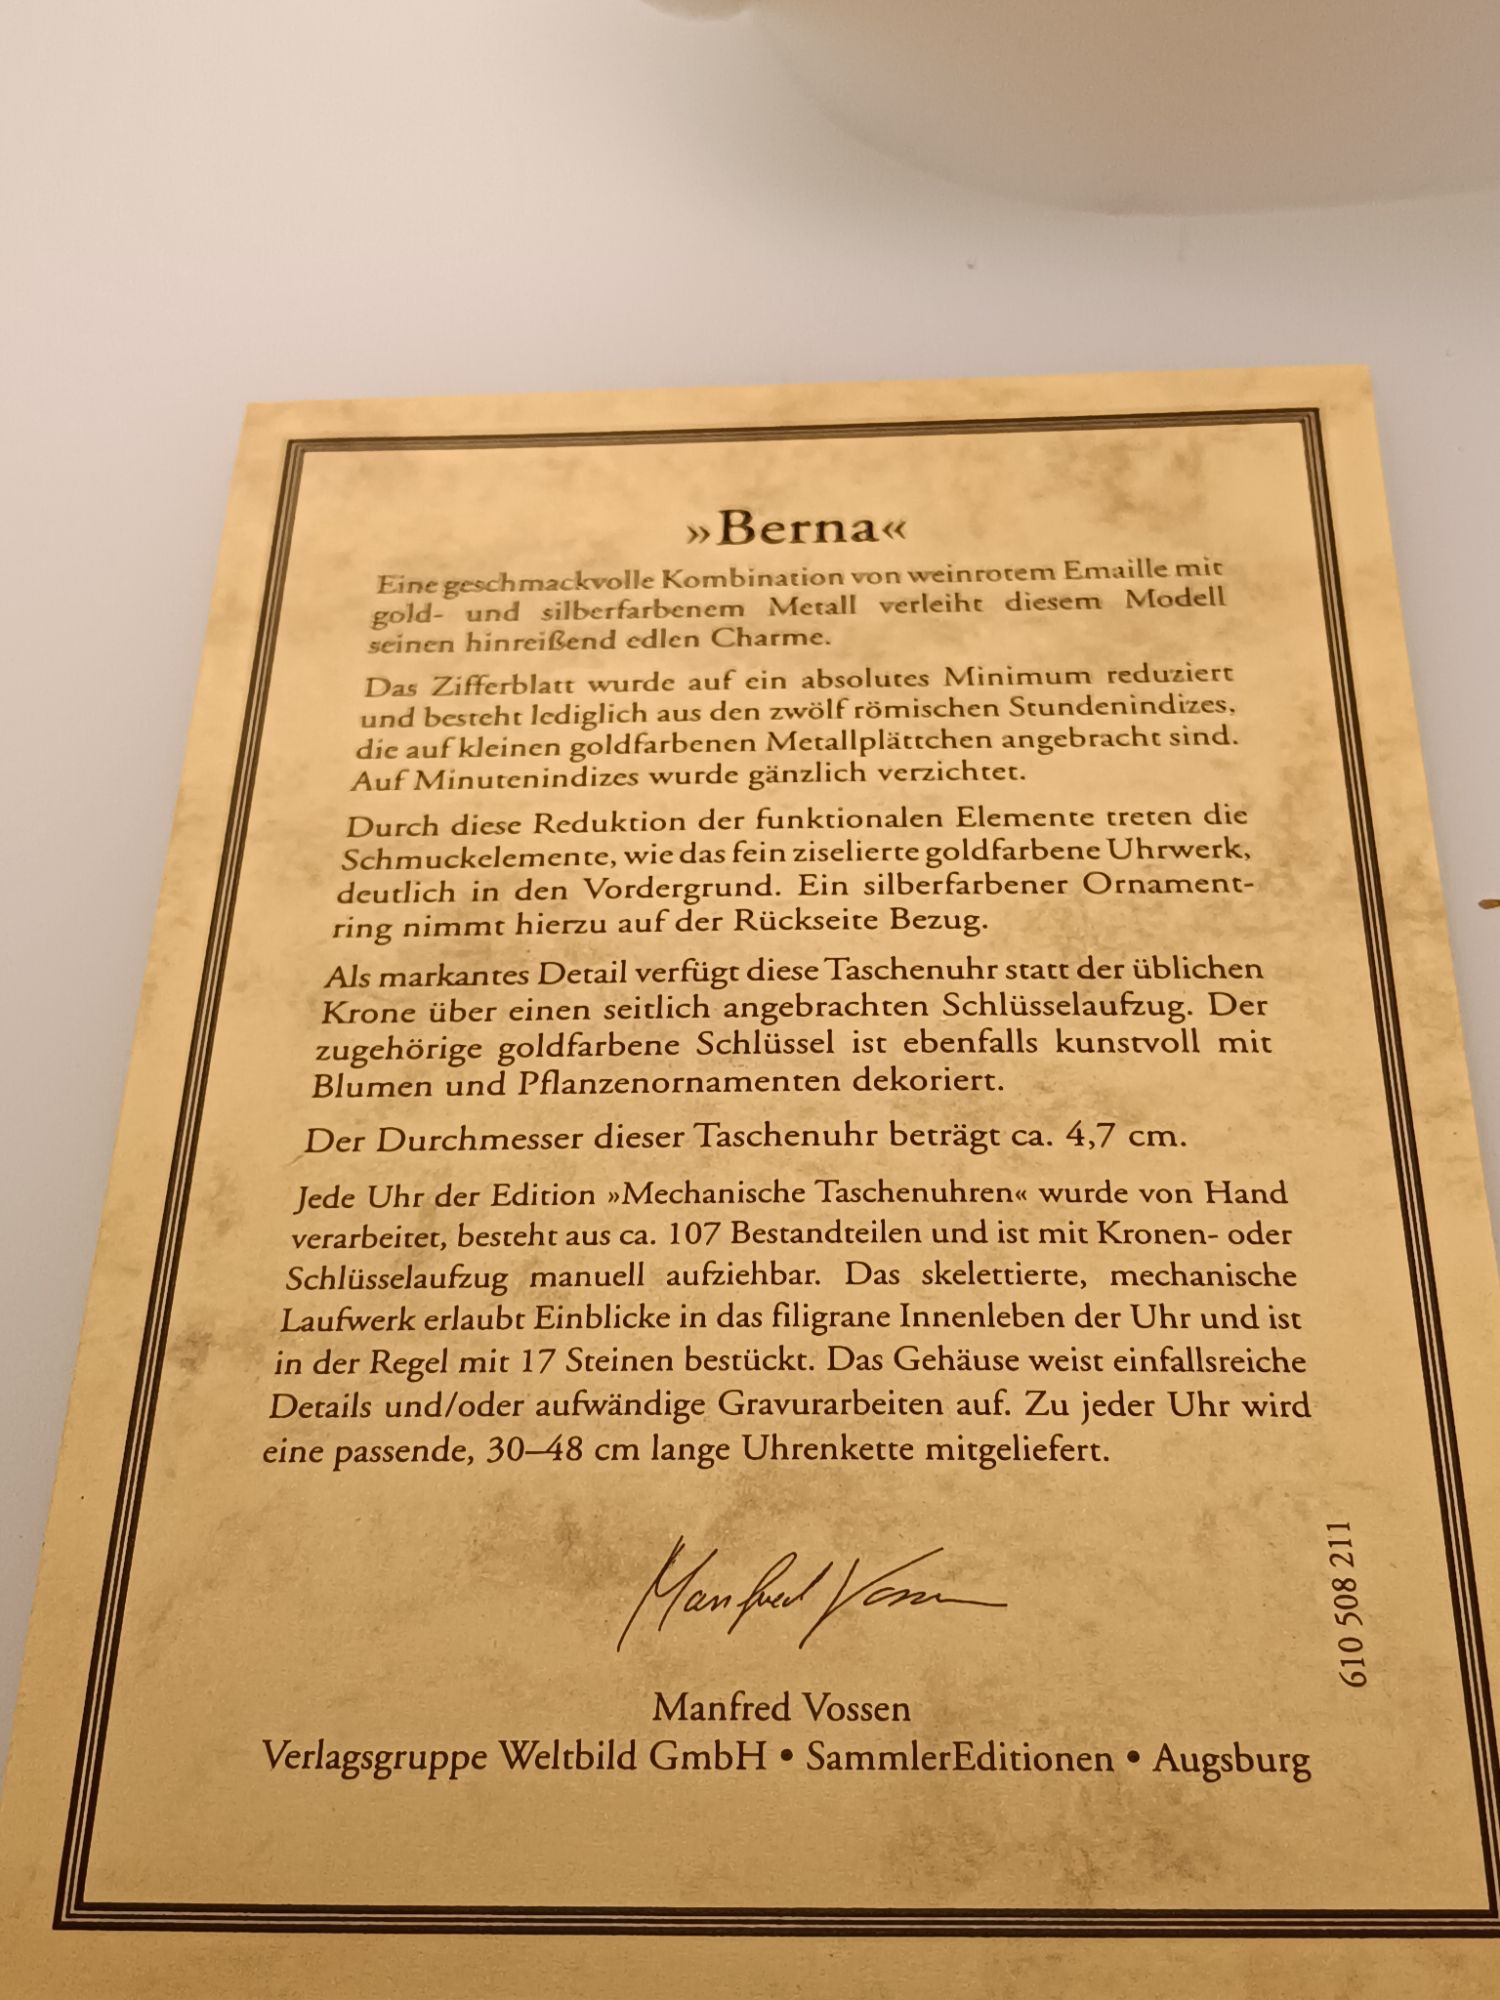 »Berna«
Eine geschmackvolle Kombination von weinrotem Emaille mit
gold- und silberfarbenem Metall verleiht diesem Modell
seinen hinreißend edlen Charme.
Das Zifferblatt wurde auf ein absolutes Minimum reduziert
und besteht lediglich aus den zwölf römischen Stundenindizes,
die auf kleinen goldfarbenen Metallplättchen angebracht sind.
Auf Minutenindizes wurde gänzlich verzichtet.
Durch diese Reduktion der funktionalen Elemente treten die
Schmuckelemente, wie das fein ziselierte goldfarbene Uhrwerk,
deutlich in den Vordergrund. Ein silberfarbener Ornament-
ring nimmt hierzu auf der Rückseite Bezug.
Als markantes Detail verfügt diese Taschenuhr statt der üblichen
Krone über einen seitlich angebrachten Schlüsselaufzug. Der
zugehörige goldfarbene Schlüssel ist ebenfalls kunstvoll mit
Blumen und Pflanzenornamenten dekoriert.
Der Durchmesser dieser Taschenuhr beträgt ca. 4,7 cm.
Jede Uhr der Edition »Mechanische Taschenuhren« wurde von Hand
verarbeitet, besteht aus ca. 107 Bestandteilen und ist mit Kronen- oder
Schlüsselaufzug manuell aufziehbar. Das skelettierte, mechanische
Laufwerk erlaubt Einblicke in das filigrane Innenleben der Uhr und ist
in der Regel mit 17 Steinen bestückt. Das Gehäuse weist einfallsreiche
Details und/oder aufwändige Gravurarbeiten auf. Zu jeder Uhr wird
eine passende, 30–48 cm lange Uhrenkette mitgeliefert.
Manfred Vossen
Manfred Vossen
Verlagsgruppe Weltbild GmbH • SammlerEditionen • Augsburg
610 508 211